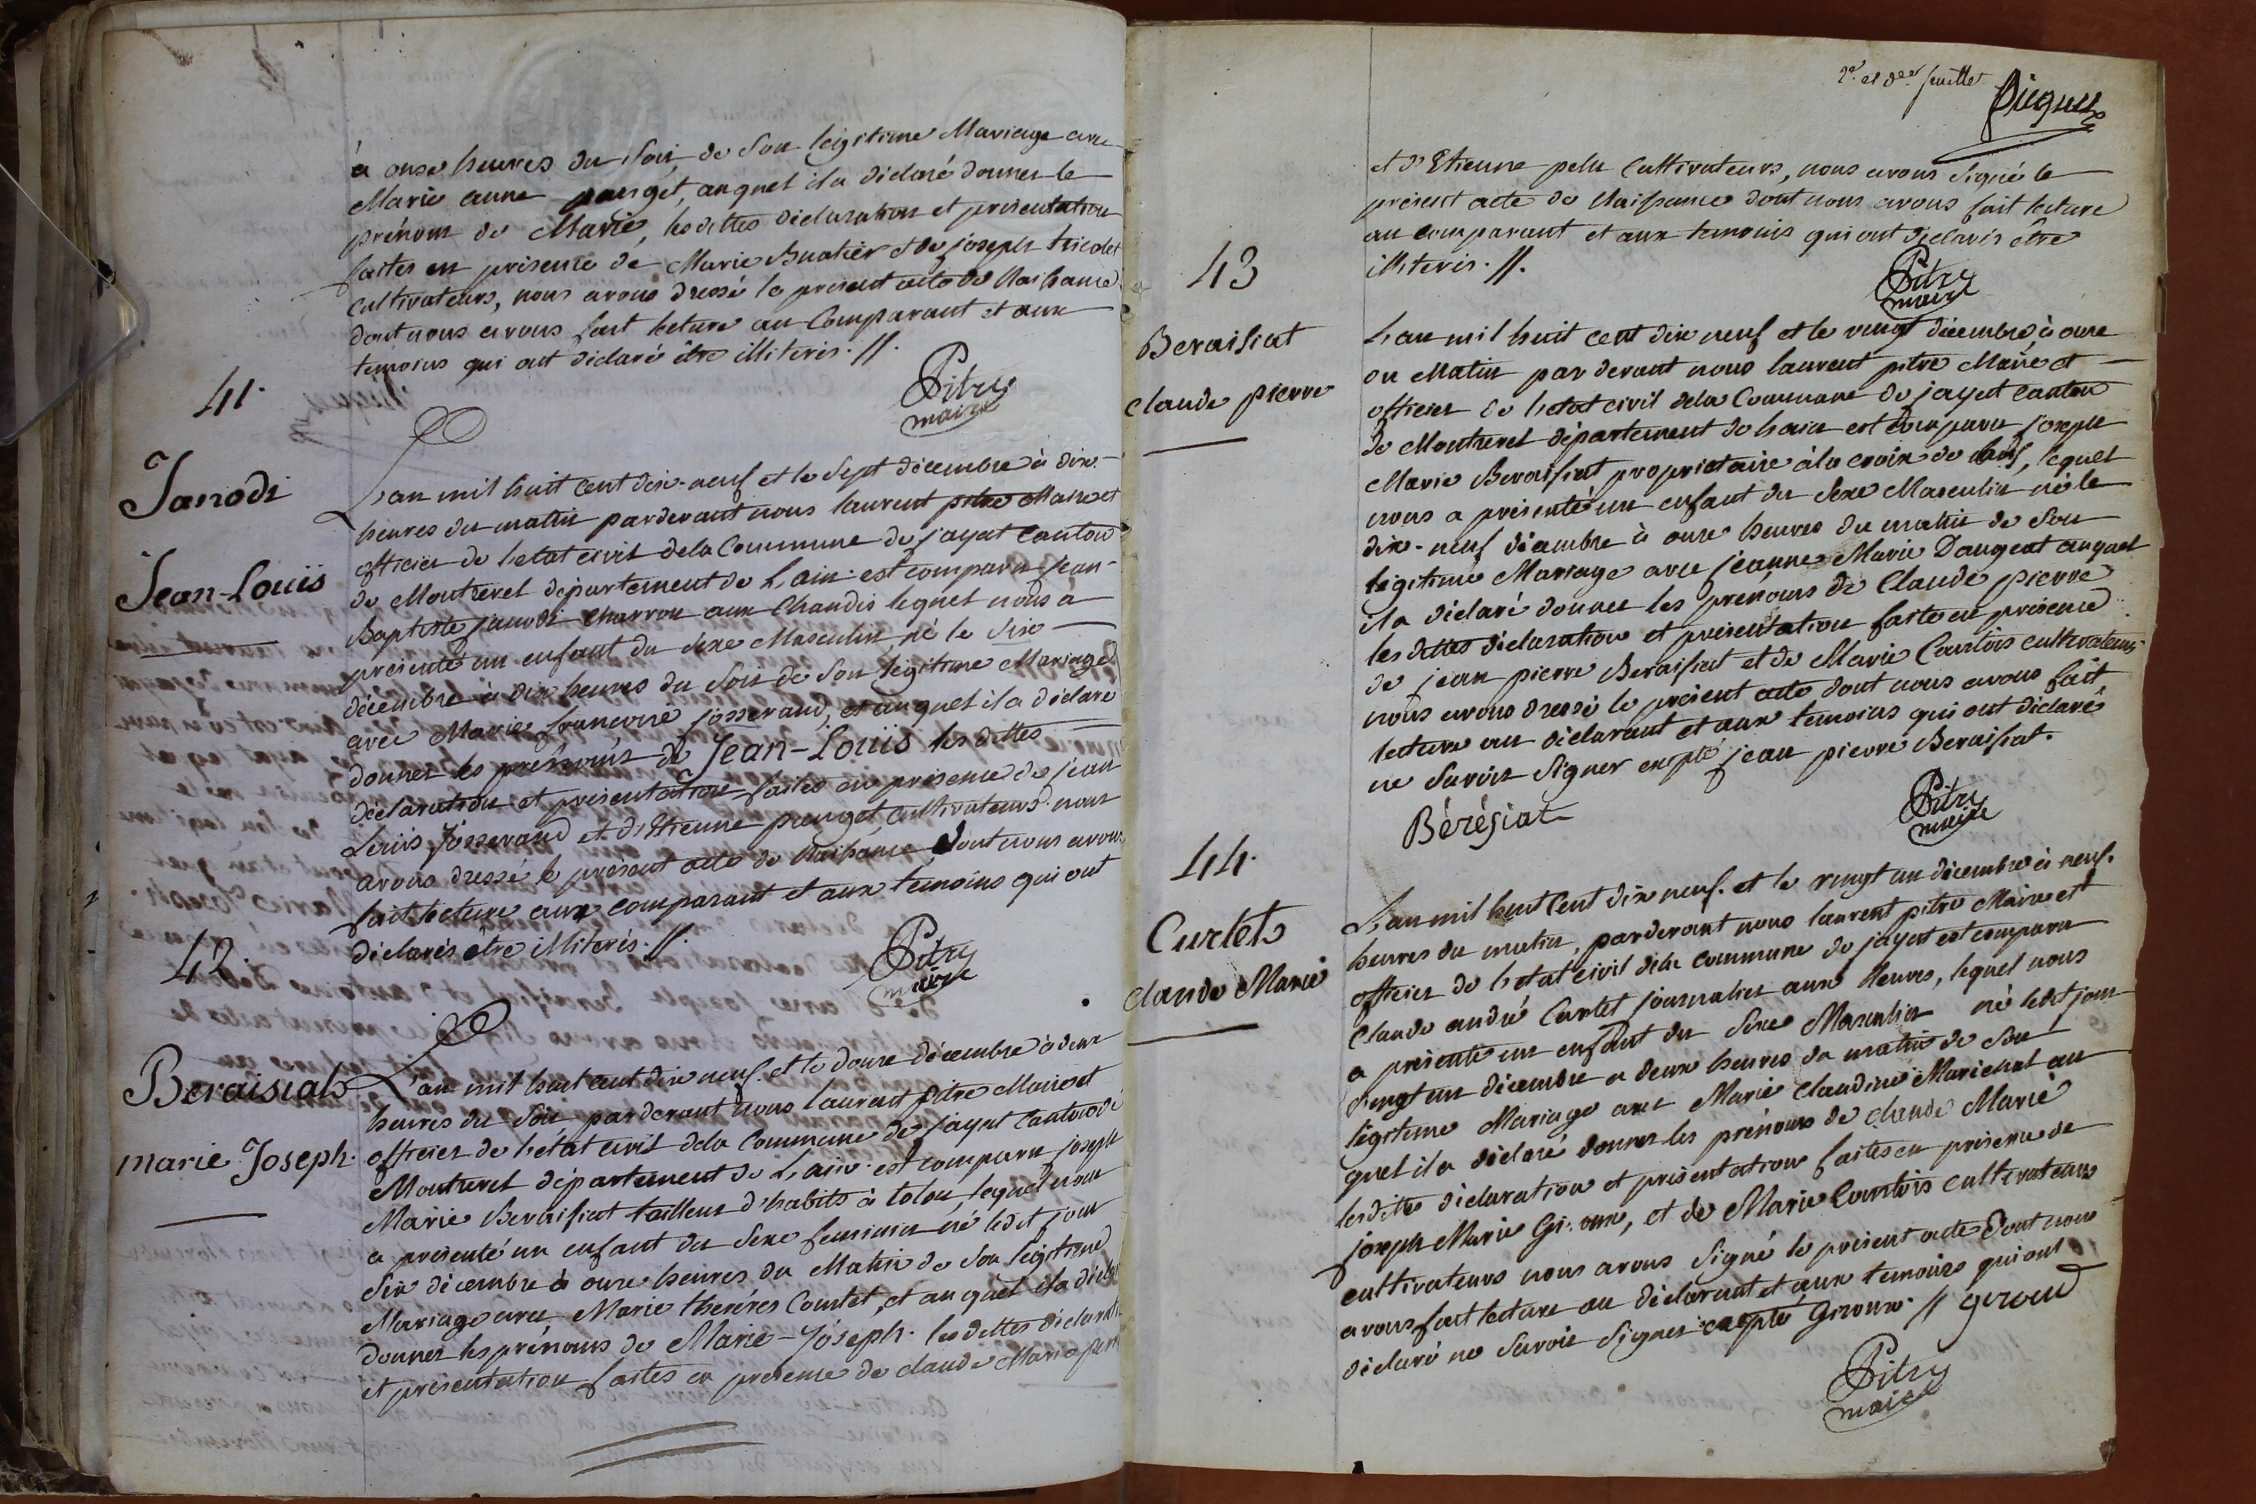 à onse heures du soir, de son légitime Mariage avec
Marie anne pauget, auquel il a déclaré donner le
prénom de Marie, les dittes déclaration et présentation
faites en présence de Marie Buatier et de joseph tricolet
cultivateurs, nous avons dressé le présent acte de Naissance
dont nous avons fait lecture au Comparant et aux
temoins qui ont déclaré être illiterés. //.
Pitre
maire
41.
Janodi
Jean-Louis
L'an mil huit cent dix-neuf et le sept décembre à dix
heures du matin pardevant nous laurent pitre Maire et
officier de l'etat civil de la Commune de jayat Canton
de Montrevel département de L'ain est comparu Jean-
Baptiste janodi charron aux Chandis lequel nous a
présenté un enfant du sexe Masculin, né le six
décembre à dix heures du soir de son légitime Mariage
avec Marie françoise josserand, et auquel il a déclaré
donner les prénoms de Jean-Louis les dittes
déclaration et présentation faites en présence de jean
Louis Josserand et d'Etienne pauget, cultivateurs. nous
avons dressé le présent acte de Naissance, dont nous avons
fait lecture aux comparant et aux temoins qui ont
déclarés être illiterés. //.
Pitre
maire
42.
Beraisiat
marie Joseph.
L'an mil huit cent dix neuf. et le douze décembre à deux
heures du soir, pardevant nous laurent pitre Maire et
officier de l'état civil de la Commune de jayat Canton de
Montrevel département de L'ain est comparu joseph
Marie Beraisiat tailleur d'habits à tolou, lequel nous
a présenté un enfant du sexe feminin né ledit jour
dix décembre à onze heures du Matin de son légitime
Mariage avec Marie theréres Comtet, et auquel il a déclaré
donner les prénoms de Marie-Joseph. les dittes déclaration
et présentation faites en présence de claude Marie
2e. et der. feuillet
et d'Etienne pelu Cultivateurs, nous avons signé le
présent acte de Naissance dont nous avons fait lecture
au comparant et aux temoins qui ont déclarés être
illiterés. //.
Pitre
maire
43
Beraisiat
claude pierre
L'an mil huit cent dix neuf et le vingt décembre, à onze
du Matin pardevant nous laurent pitre Maire et
officier de l'etat civil de la Commune de jayat canton
de Montrevel département de l'ain est comparu joseph
Marie Beraisiat propriétaire à la croix de lequel
nous a présenté un enfant du sexe Masculin né le
dix-neuf décembre à onze heures du matin de son
légitime Mariage avec jeanne Marie Daugeat auquel
il a déclaré donner les prénoms de Claude pierre
les dittes déclaration et présentation faite en présence
de jean pierre Beraisiat et de Marie Courtois cultivateurs
nous avons dressé le présent acte dont nous avons fait
lecture au déclarant et aux temoins qui ont déclaré
ne savoir signer excepté jean pierre Beraisiat.
Bérésiat
Pitre
maire
44.
Curlet
claude Marie
L'an mil huit Cent dix neuf. et le vingt un décembre à neuf.
heures du matin, pardevant nous laurent pitre Maire et
officier de l'etat civil de la commune de jayat est comparu
Claude andré Curlet journalier aux Neuves, lequel nous
a présenté un enfant du sexe Masculin né ledit jour
vingt un décembre à deux heures du matin de son
légitime Mariage avec Marie Claudine Marichat au
quel il a déclaré donner les prénoms de claude Marie
les dittes déclaration et présentation faites en présence de
joseph Marie et de Marie Courtois cultivateurs
cultivateurs nous avons signé le présent acte dont nous
avons fait lecture au déclarant et aux temoins qui ont
déclaré ne savoir signer excepté //
Pitre
maire